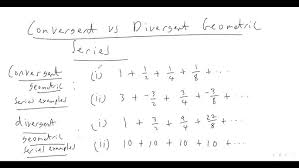 Convergent vs Divergent Geometric
Series
Convergent
geometric
series examples : (i) 1 + 1/2 + 1/4 + 1/8 + ...
(ii) 3 + -3/2 + 3/4 + -3/8 + ...
divergent
geometric
series examples : (i) 1 + 3/2 + 9/4 + 27/8 + ...
(ii) 10 + 10 + 10 + 10 + ...